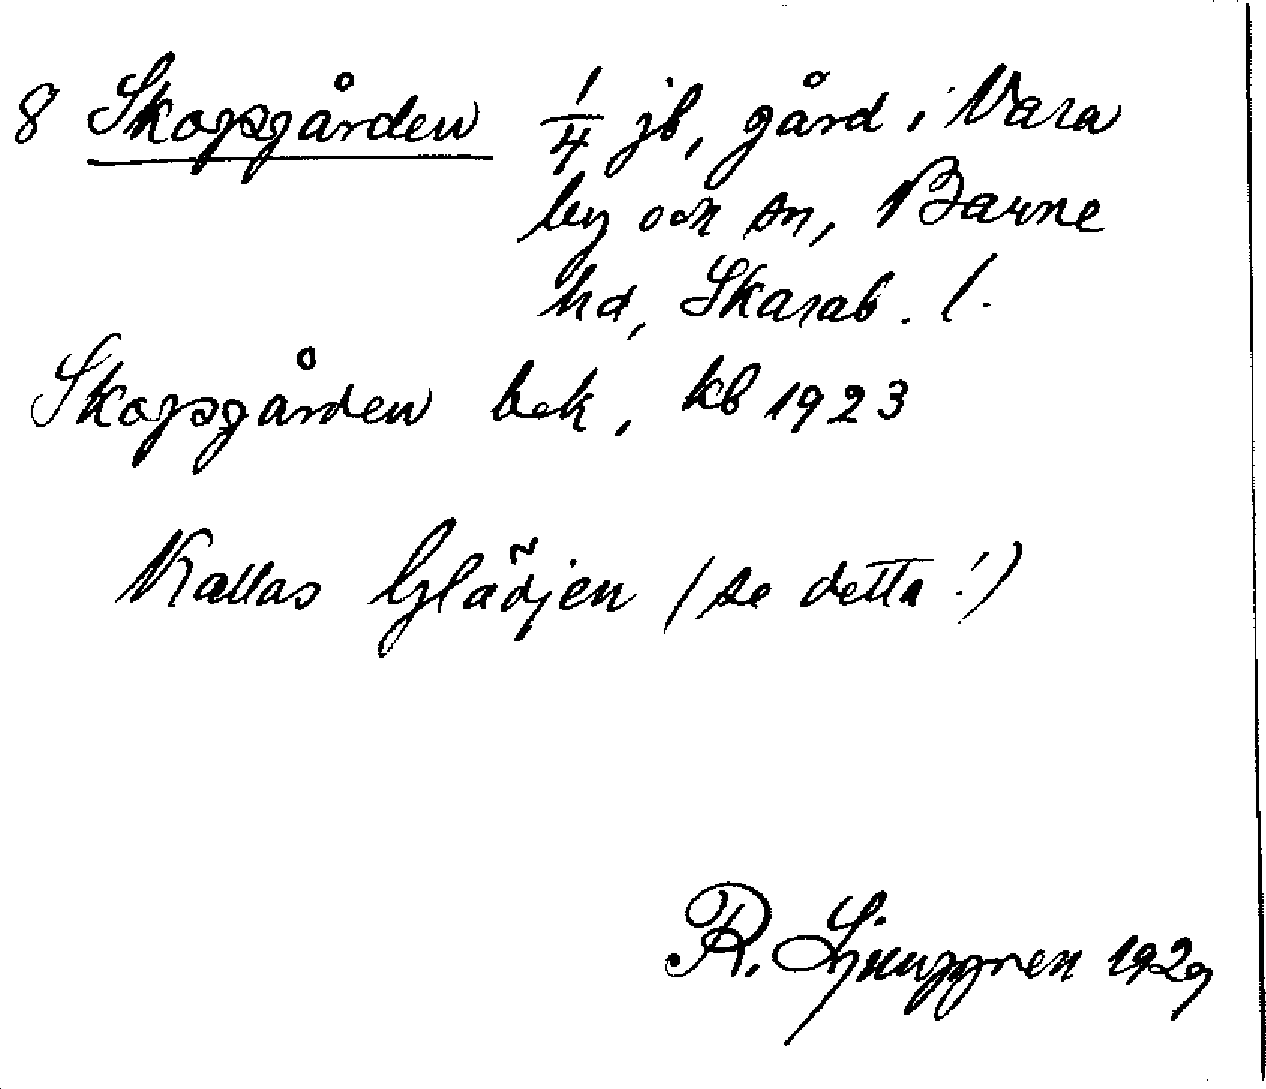 8 Skopsgården 1/4 jb, gård i Vara
by och sn, Barne
hd, Skarab. l.
Skopsgården bek, kb 1923
Kallas Glädjen (se detta!)
R. Ljunggren 1929